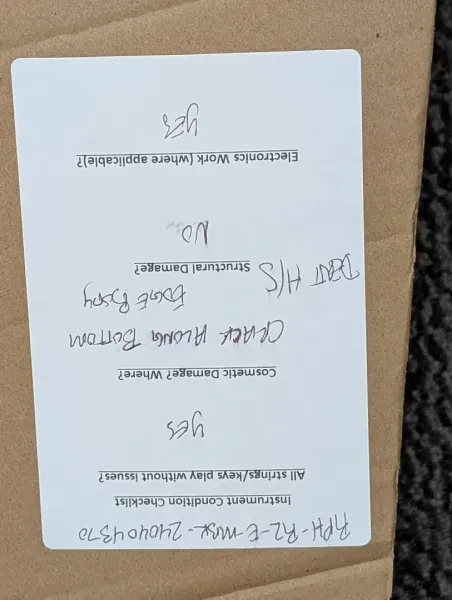 RPH-R2-E-MISC-240404370
Instrument Condition Checklist
All strings/keys play without issues?
YES
Cosmetic Damage? Where?
CRACK ALONG BOTTOM
EDGE BODY
DENT H/S
Structural Damage?
NO
Electronics Work (where applicable)?
YES